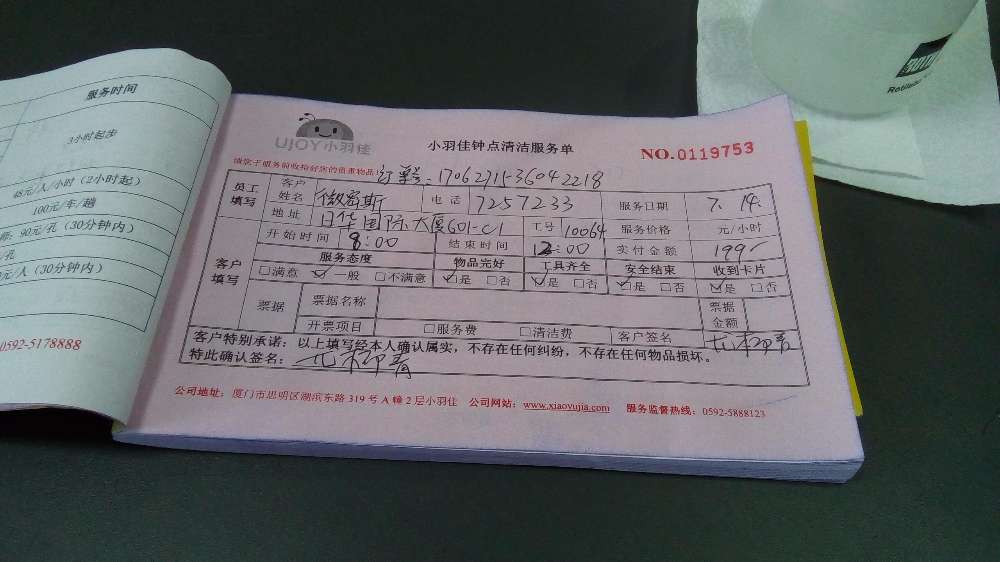 服务时间
3小时起步
45元/人/小时（2小时起）
100元/车/趟
90元/孔（30分钟内）
/孔
元/人（30分钟内）
0592-5178888
UJOY小羽佳
小羽佳钟点清洁服务单
NO.0119753
请您于服务前收拾好您的贵重物品
订单号：1706271536042218
员工填写
客户姓名 微容斯 电话 7257233 服务日期 7.14.
地址 日华国际大厦601-C1 工号 10064 服务价格 元/小时
开始时间 8:00 结束时间 12:00 实付金额 199
客户填写
服务态度 物品完好 工具齐全 安全结束 收到卡片
□满意 ☑一般 □不满意 ☑是 □否 ☑是 □否 ☑是 □否 ☑是 □否
票据 票据名称 票据金额
开票项目 □服务费 □清洁费 客户签名
客户特别承诺：以上填写经本人确认属实，不存在任何纠纷，不存在任何物品损坏。
特此确认签名：
公司地址：厦门市思明区湖滨东路319号A幢2层小羽佳 公司网站：www.xiaoyujia.com 服务监督热线：0592-5888123